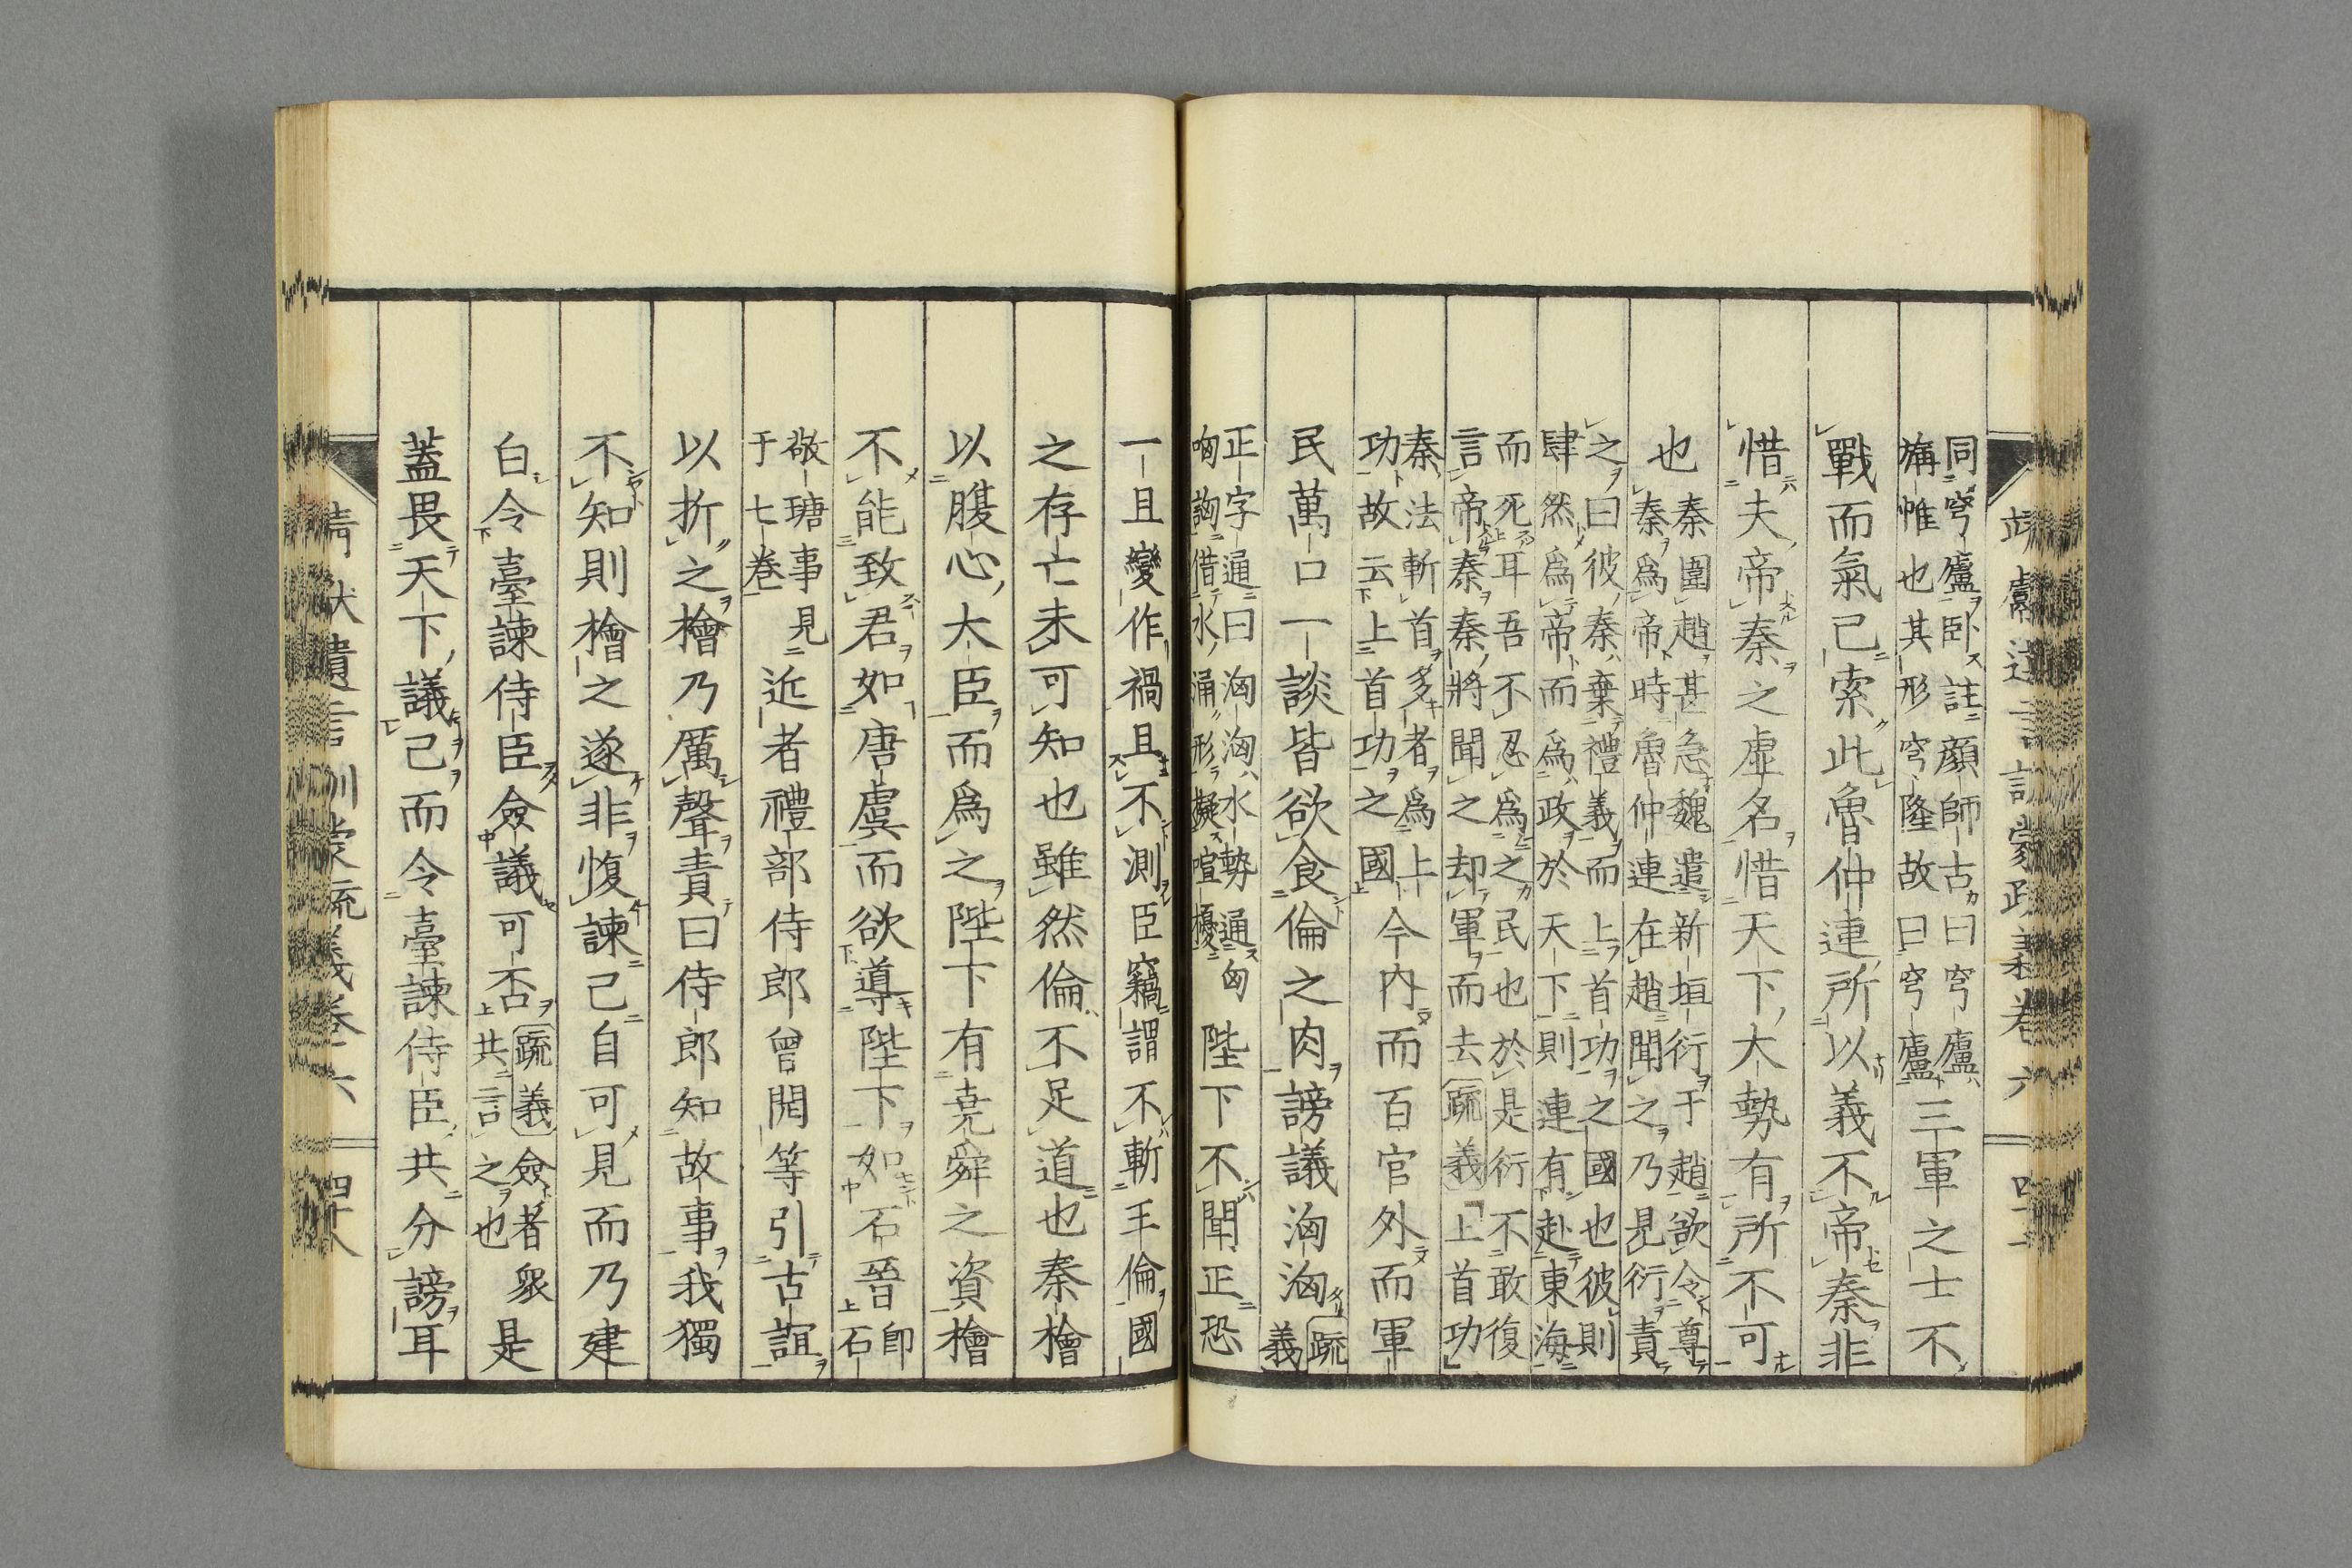 靖獻遺言訓蒙疏義卷六
同穹廬臥註顏師古曰穹廬
旃帷也其形穹隆故曰穹廬
三軍之士不
戰而氣已索此魯仲連所以義不帝秦非
惜夫帝秦之虛名惜天下大勢有所不可
也
秦圍趙甚急魏遣新垣衍于趙欲令尊
秦爲帝時魯仲連在趙聞之乃見衍責
之曰彼秦棄禮義而上首功之國也彼則
肆然爲帝而爲政於天下則連有赴東海
而死耳吾不忍爲之民也於是衍不敢復
言帝秦秦將聞之却軍而去疏義「上首功」
秦法斬首多者爲上
功故云上首功之國
今內而百官外而軍
民萬口一談皆欲食倫之肉謗議洶洶
疏義
正字通曰洶洶水勢通匈
哅詾借水涌形擬喧擾
陛下不聞正恐
一旦變作禍且不測臣竊謂不斬王倫國
之存亡未可知也雖然倫不足道也秦檜
以腹心大臣而爲之陛下有堯舜之資檜
不能致君如唐虞而欲導陛下如石晉
即
石
敬瑭事見
于七卷
近者禮部侍郎曾開等引古誼
以折之檜乃厲聲責曰侍郎知故事我獨
不知則檜之遂非愎諫已自可見而乃建
白令臺諫侍臣僉議可否
疏義僉者衆
共言之也
是
蓋畏天下議己而令臺諫侍臣共分謗耳
靖獻遺言訓蒙疏義卷六